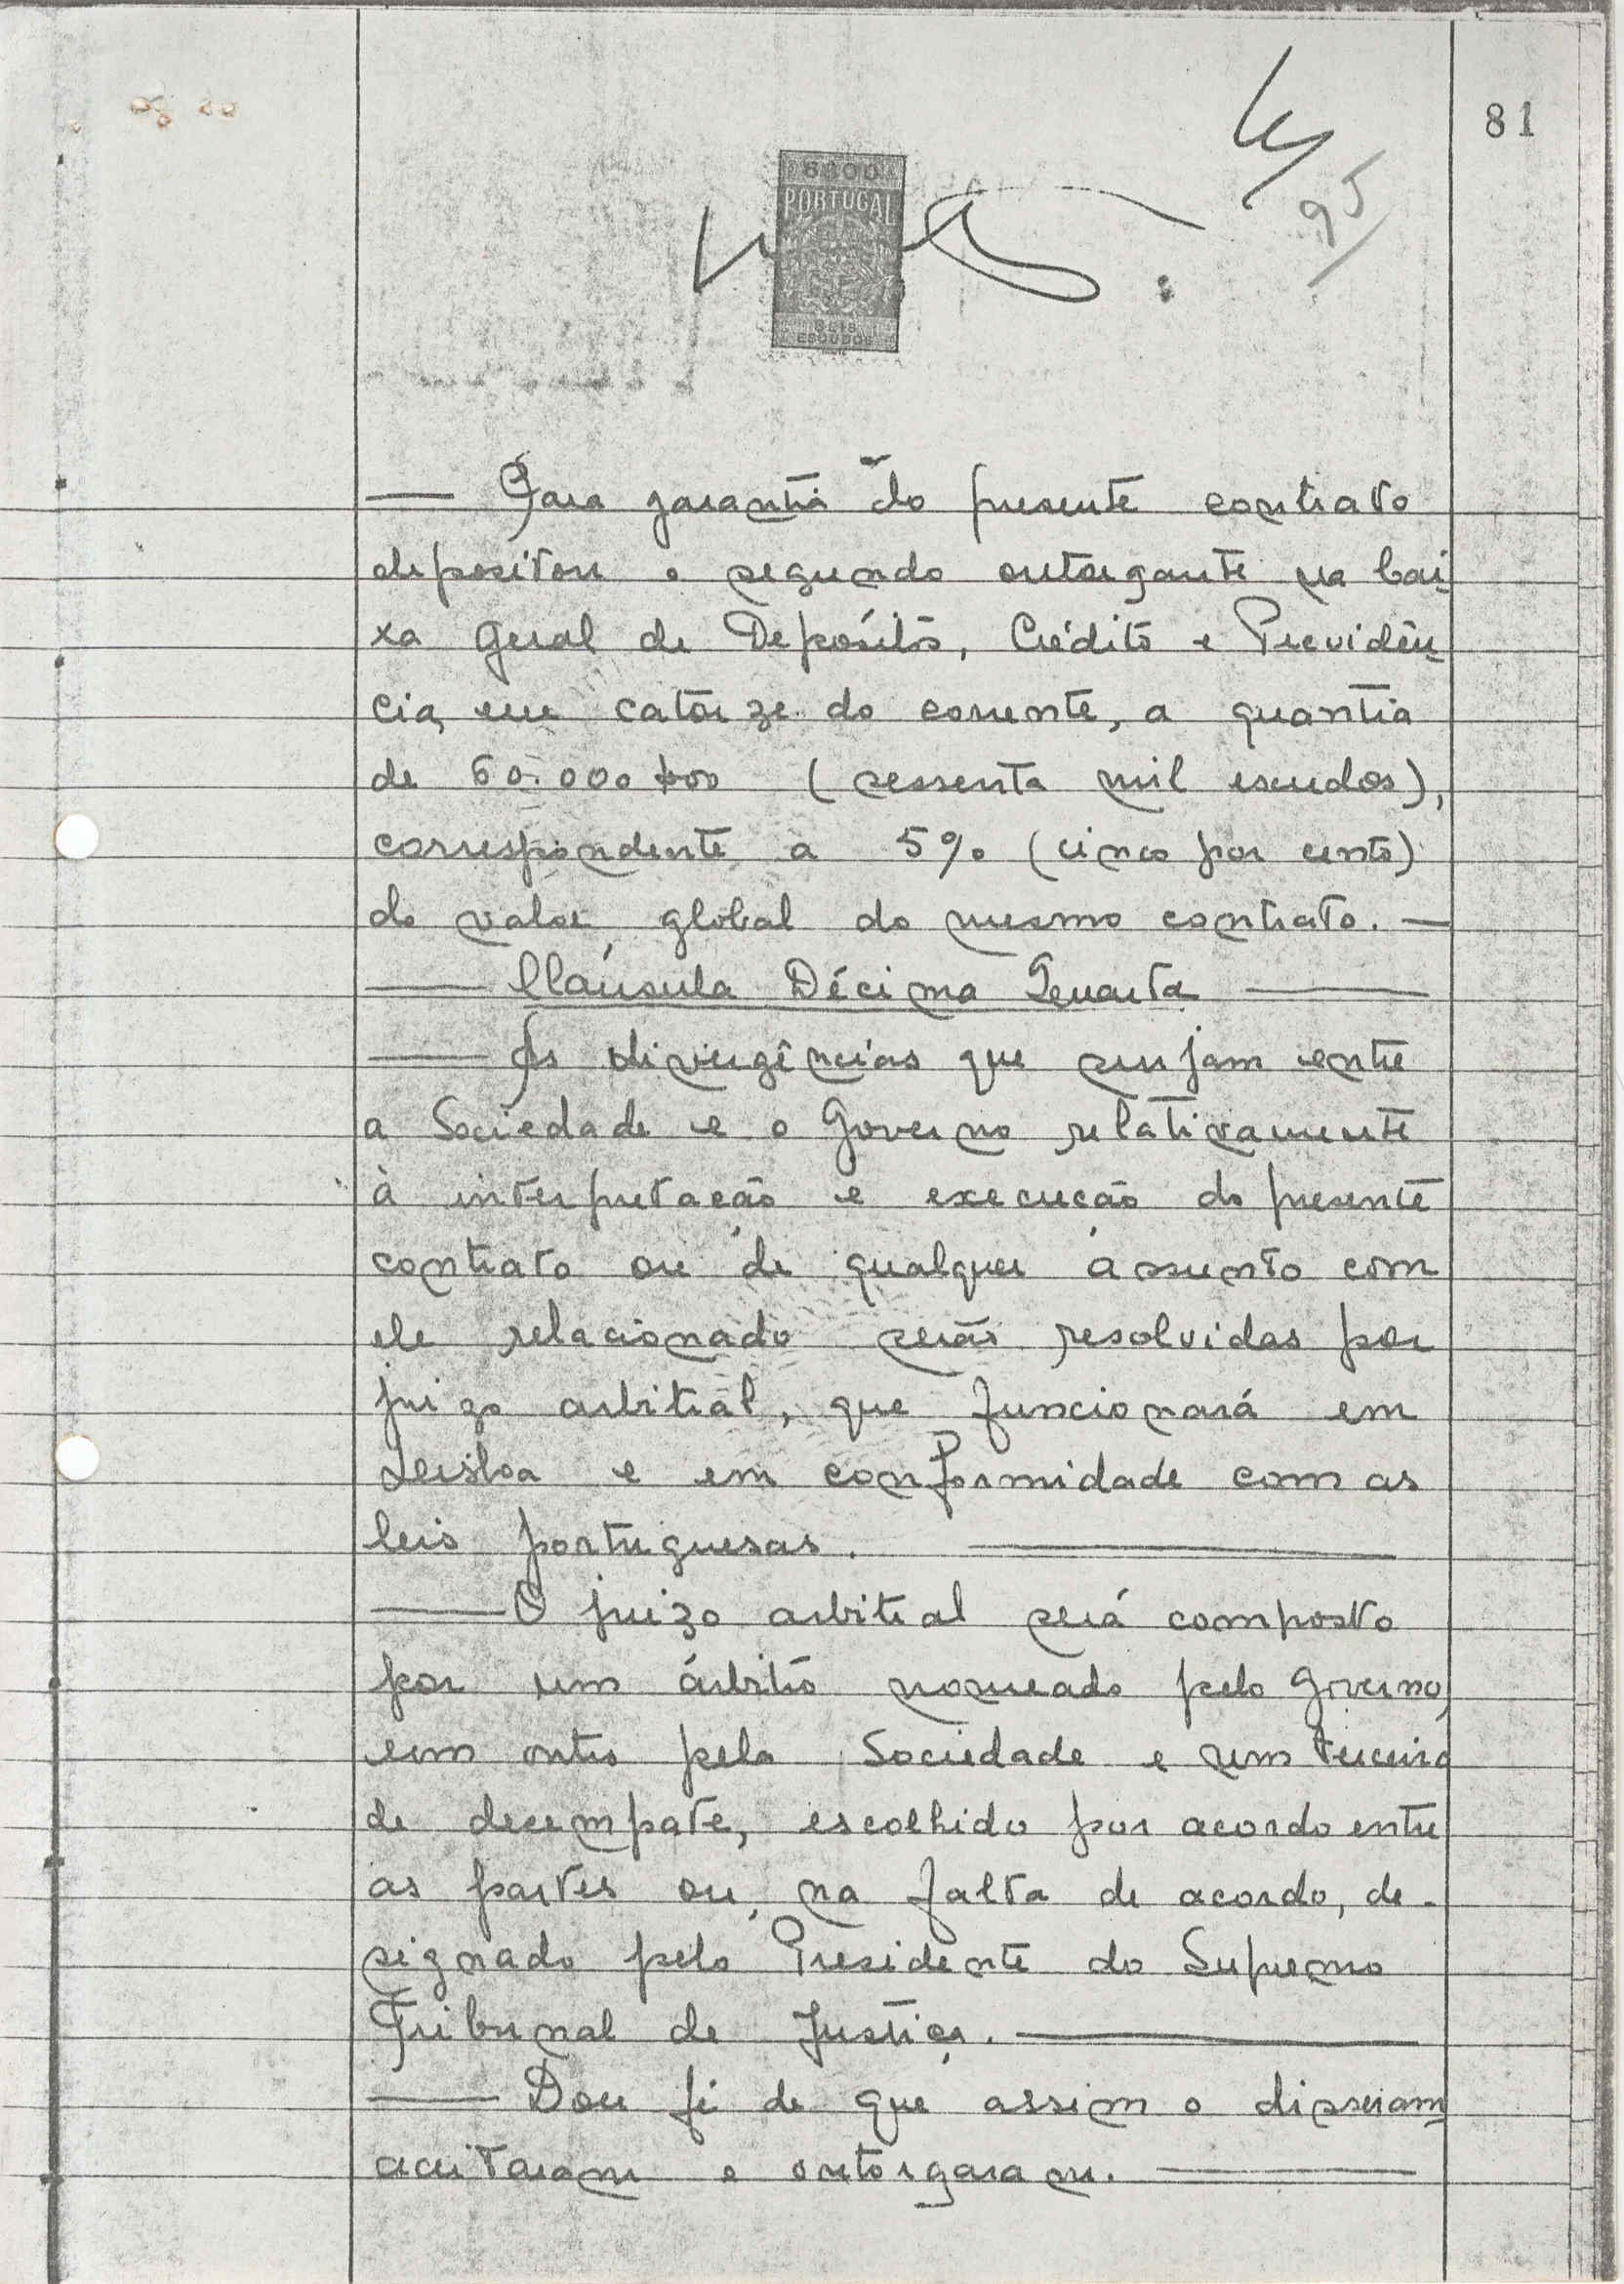 81
95
6$00
PORTUGAL
SEIS
ESCUDOS
— Para garantia do presente contrato
depositou o segundo outorgante na Cai-
xa Geral de Depósitos, Crédito e Previdên-
cia, em catorze do corrente, a quantia
de 60.000$00 (sessenta mil escudos),
correspondente a 5% (cinco por cento)
do valor global do mesmo contrato. —
— Cláusula Décima Quarta —
— As divergências que surjam entre
a Sociedade e o Governo relativamente
à interpretação e execução do presente
contrato ou de qualquer assunto com
ele relacionado serão resolvidas por
juizo arbitral, que funcionará em
Lisboa e em conformidade com as
leis portuguesas. —
— O juizo arbitral será composto
por um árbitro nomeado pelo Governo,
um outro pela Sociedade e um terceiro
de desempate, escolhido por acordo entre
as partes ou, na falta de acordo, de-
signado pelo Presidente do Supremo
Tribunal de Justiça. —
— Dou fé de que assim o disseram,
aceitaram e outorgaram. —